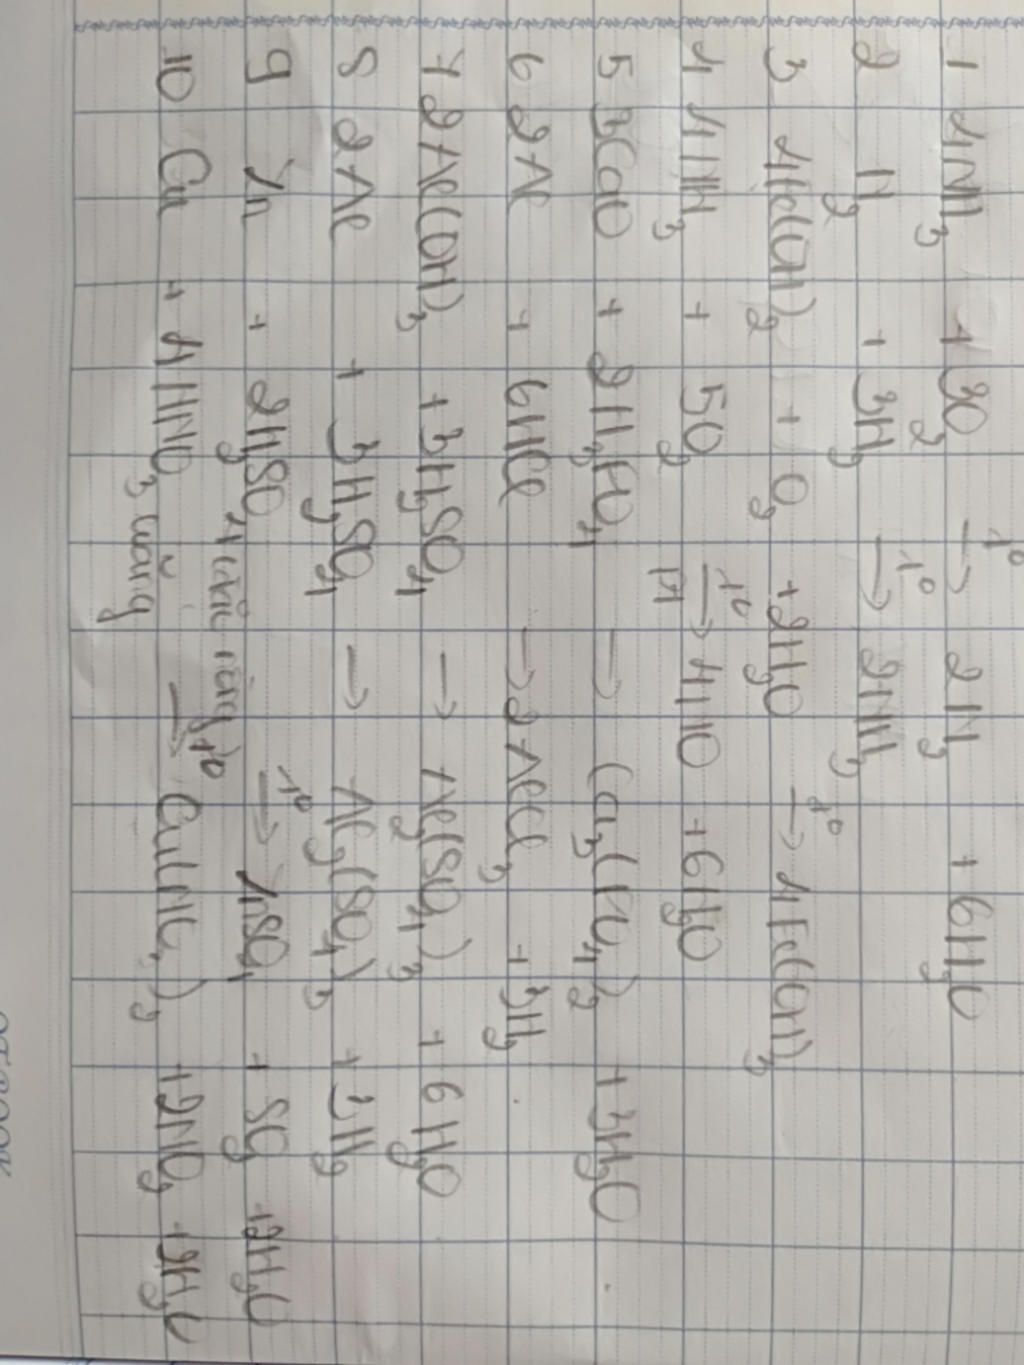 1 4NH3 + 3O2 t°→ 2N2 + 6H2O
2 N2 + 3H2 t°→ 2NH3
3 4Fe(OH)2 + O2 + 2H2O t°→ 4Fe(OH)3
4 4NH3 + 5O2 t°→ Pt 4NO + 6H2O
5 3CaO + 2H3PO4 → Ca3(PO4)2 + 3H2O
6 2Al + 6HCl → 2AlCl3 + 3H2
7 2Al(OH)3 + 3H2SO4 → Al2(SO4)3 + 6H2O
8 2Al + 3H2SO4 → Al2(SO4)3 + 3H2
9 Zn + 2H2SO4 (đặc nóng) t°→ ZnSO4 + SO2 + 2H2O
10 Cu + 4HNO3 t°→ Cu(NO3)2 + 2NO2 + 2H2O